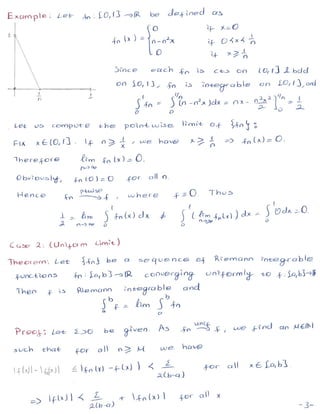 Example: Let fn: [0,1] → R be defined as
fn(x) = { 0 if x=0
n-n²x if 0<x<1/n
0 if x ≥ 1/n
Since each fn is cts on (0,1] & bdd
on [0,1], fn is integrable on [0,1], and
∫₀¹ fn = ∫₀^(1/n) (n-n²x)dx = nx - n²x²/2 |₀^(1/n) = 1/2
Let us compute the pointwise limit of {fn}:
Fix x ∈ (0,1]. If n ≥ 1/x, we have x ≥ 1/n ⇒ fn(x)=0.
Therefore lim n→∞ fn(x) = 0.
Obviously, fn(0)=0 for all n.
Hence fn → ptwise f, where f=0 Thus
1/2 = lim n→∞ ∫₀¹ fn(x)dx ≠ ∫₀¹ (lim n→∞ fn(x))dx = ∫₀¹ 0dx = 0.
Case 2: (Uniform Limit)
Theorem: Let {fn} be a sequence of Riemann integrable
functions fn: [a,b] → R converging uniformly to f: [a,b] → R
Then f is Riemann integrable and
∫ₐᵇ f = lim ∫ₐᵇ fn
Proof: Let ε>0 be given. As fn → unif f, we find an M∈N
such that for all n ≥ M we have
|f(x)|-|fn(x)| ≤ |fn(x)-f(x)| < ε/2(b-a) for all x ∈ [a,b].
⇒ |f(x)| < ε/2(b-a) + |fn(x)| for all x
-3-